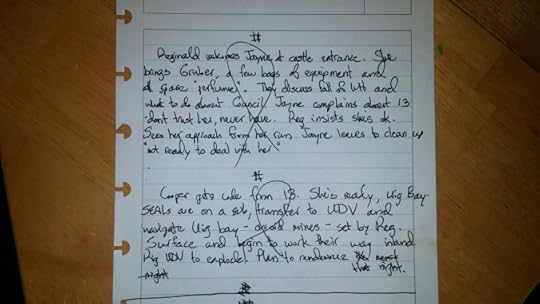 #
Reginald welcomes Jayne at castle entrance. She
brings Gruber, a few bags of equipment and
of space "perfume". They discuss fall of with and
what to do about Council. Jayne complains about 13
-dont trust her, never have. Reg insists shes ok.
Sees her approach from her run. Jayne leaves to clean up
"not ready to deal with her"
#
Cooper gets code from 13. Shes ready, Uig Bay.
SEALs are on a sub, transfer to UDV and
navigate Uig bay - avoid mines - set by Reg.
Surface and begin to work their way inland
Rig UDV to explode. Plan to rendezvous
that night.
night
#